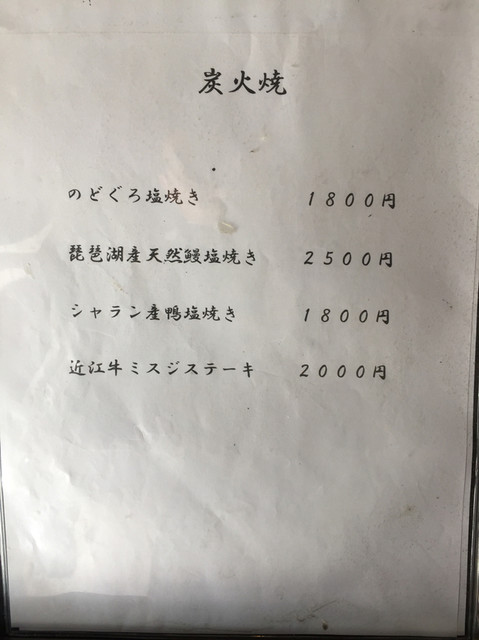 炭火焼
のどぐろ塩焼き 1800円
琵琶湖産天然鰻塩焼き 2500円
シャラン産鴨塩焼き 1800円
近江牛ミスジステーキ 2000円